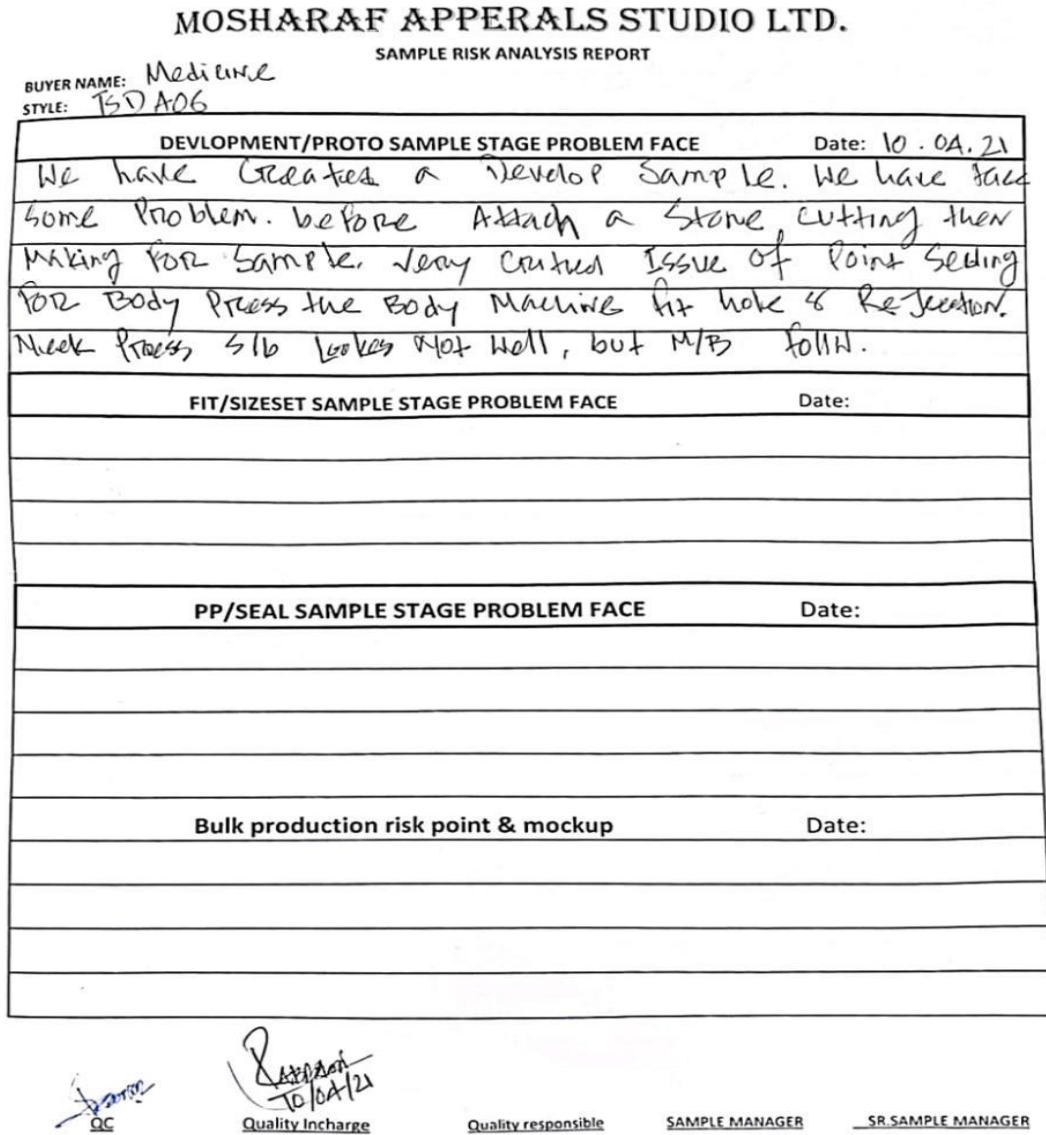 MOSHARAF APPERALS STUDIO LTD.
SAMPLE RISK ANALYSIS REPORT
BUYER NAME: Medicine
STYLE: TSD A06
DEVLOPMENT/PROTO SAMPLE STAGE PROBLEM FACE Date: 10.04.21
We have Created a Develop Sample. We have face
Some Problem. before Attach a Stone, cutting then
Making For Sample. Very Issue Of Point
For Body Press the Body Machine hole & Rejection.
Neck Press Not Well, but M/B
FIT/SIZESET SAMPLE STAGE PROBLEM FACE Date:
PP/SEAL SAMPLE STAGE PROBLEM FACE Date:
Bulk production risk point & mockup Date:
10/04/21
QC Quality Incharge Quality responsible SAMPLE MANAGER SR.SAMPLE MANAGER